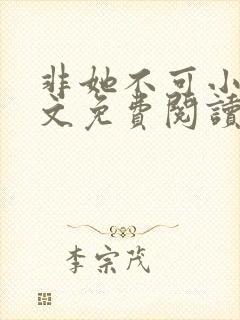 非她不可小
文免費閱讀
李宗茂